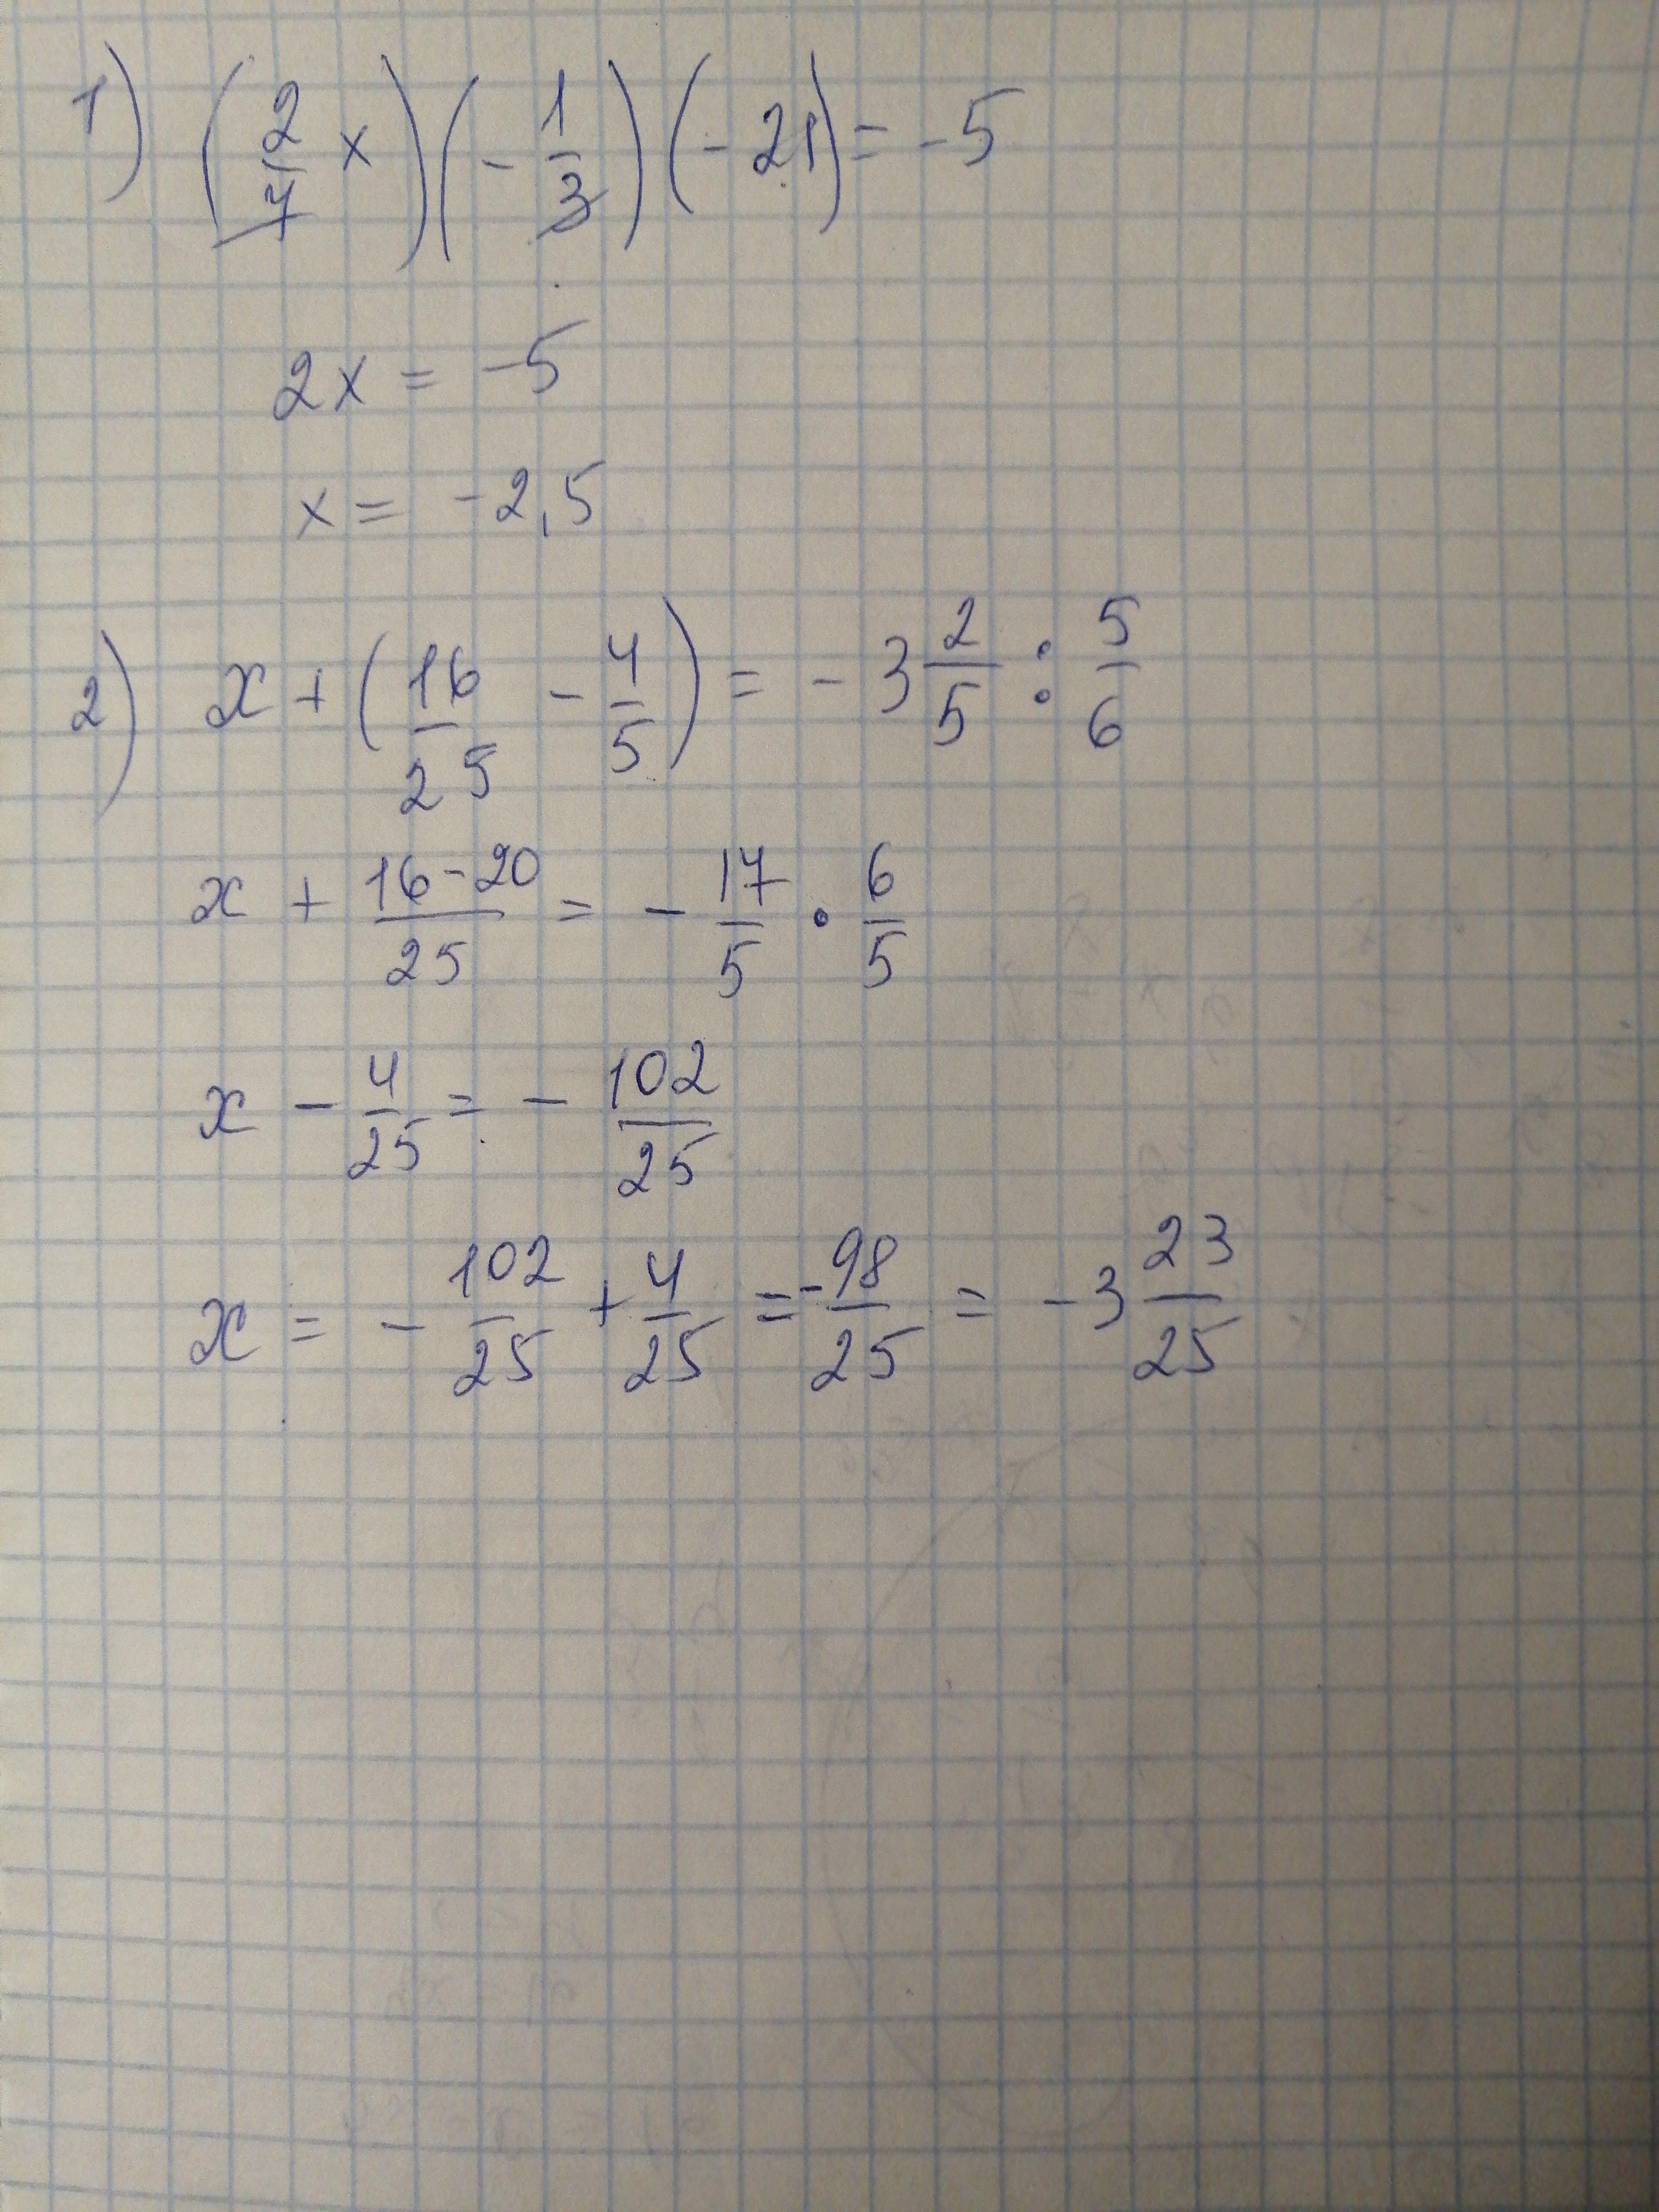 1) (2/7 x)(- 1/3)(- 21) = - 5
2x = -5
x = -2,5
2) x + (16/25 - 4/5) = - 3 2/5 : 5/6
x + (16-20)/25 = - 17/5 · 6/5
x - 4/25 = - 102/25
x = - 102/25 + 4/25 = - 98/25 = - 3 23/25